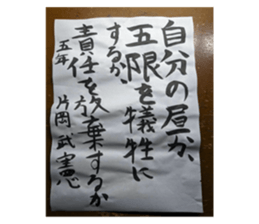 自分の昼か、
五限を犠牲に
するか、
責任を放棄するか
五年 片岡武憲